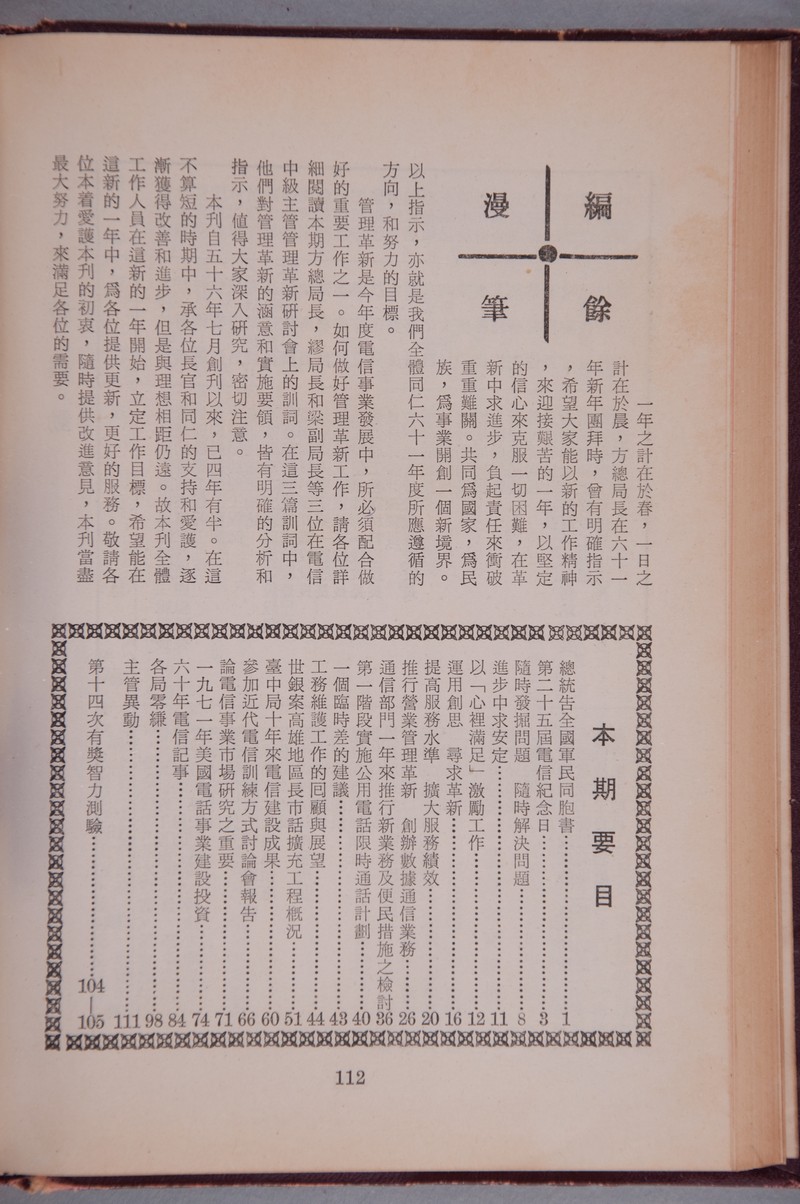 編餘
漫筆
一年之計在於春，一日之
計在於晨，方總局長在六十一
年新年團拜時，曾有明確指示
，希望大家能以新的工作精神
，來迎接艱苦的一年，以堅定
的信心來克服一切困難，在革
新中求進步，負起責任來衝破
重重難關。共同爲國家，爲民
族，爲事業開創一個新境界。
以上指示，亦就是我們全體同仁六十一年度所應遵循的
方向，和努力的目標。
管理革新是今年度電信事業發展中，所必須配合做
好的重要工作之一。如何做好管理革新工作，請各位詳
細閱讀本期方總局長，繆局長和梁副局長等三位在電信
中級主管管理革新研討會上的訓詞。在這三篇訓詞中，
他們對管理革新的涵意和實施要領，皆有明確的分析和
指示，値得大家深入研究，密切注意。
本刊自五十六年七月創刊以來，已四年有半。在這
不算短的時期中，承各位長官和同仁的支持和愛護，逐
漸獲得改善和進步，但是與理想相距仍遠。故本刊全體
工作人員在這新的一年開始，立定工作目標，希望能在
這新的一年中，爲各位提供更新，更好的服務。敬請各
位本着愛護本刊的初衷，隨時提供改進意見，本刊當盡
最大努力，來滿足各位的需要。
本期要目
總統告全國軍民同胞書…………1
第二十五屆電信紀念日…………3
隨時發掘問題　隨時解決問題…………8
進步中求安定…………11
以「心裡滿足」激勵工作…………12
運用創思　尋求革新…………16
提高服務水準　擴大服務績效…………20
推行營業管理革新　創辦數據通信業務…………26
通信部門一年來推行新業務及便民措施之檢討…………36
第一階段實施公用電話限時通話計劃…………40
一個臨時差的建議…………43
工務維護工作的囘顧與展望…………44
世銀案高雄地區長市話擴充工程槪況…………51
臺中局十年來電信建設成果…………60
參加近代電信訓練方式討論會報告…………66
論電信事業市場研究之重要…………71
一九七一年美國電話事業建設投資…………74
六十年電信記事…………84
各局零縑…………98
主管異動…………111
第十四次有獎智力測驗…………104—105
112